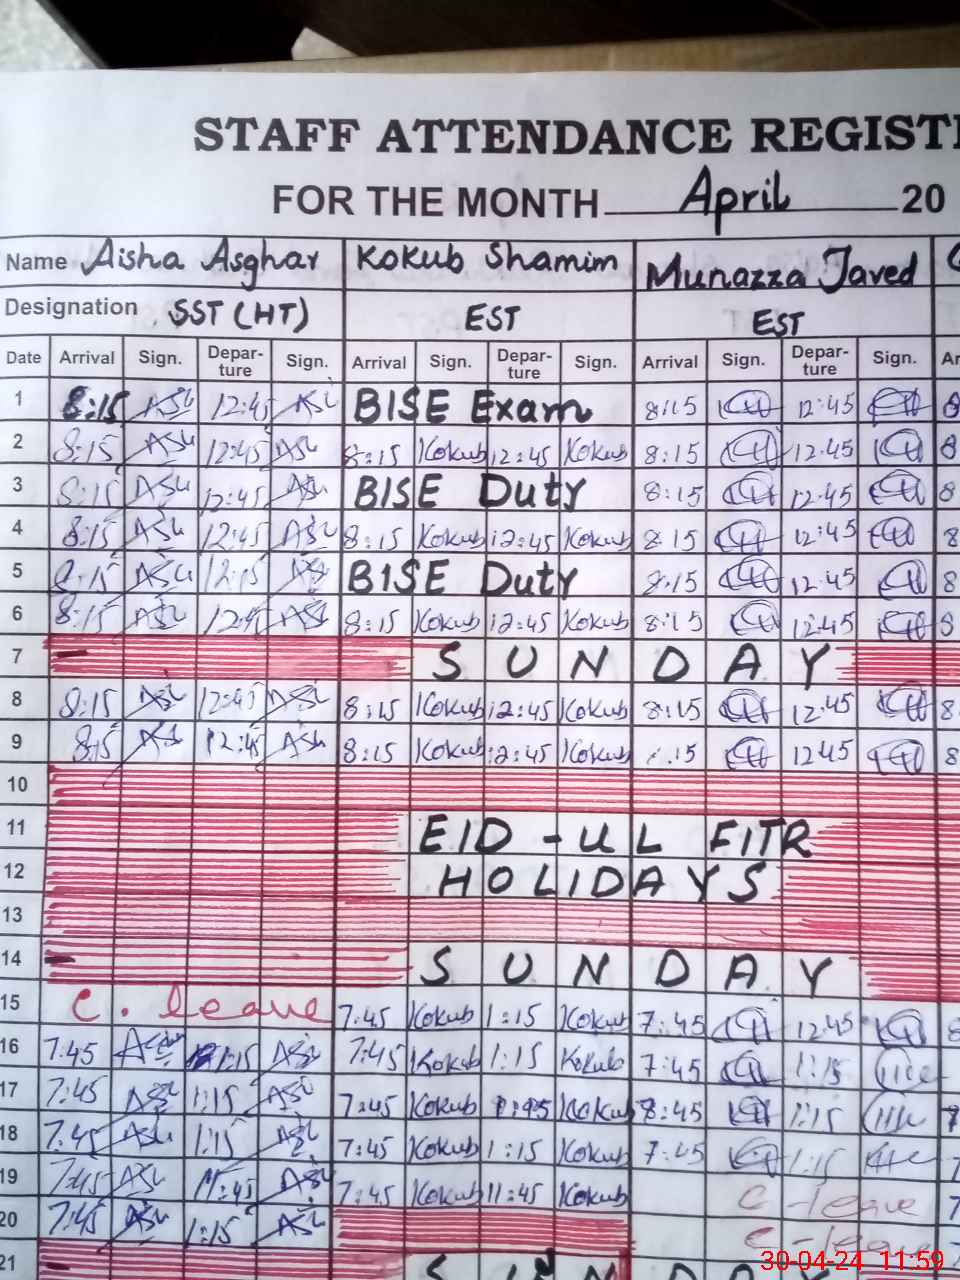 STAFF ATTENDANCE REGISTE
FOR THE MONTH April 20
Name Aisha Asghar Kokub Shamim Munazza Javed
Designation SST (HT) EST EST
Date Arrival Sign. Depar-ture Sign. Arrival Sign. Depar-ture Sign. Arrival Sign. Depar-ture Sign. Ar
1 8:15 12:45 BISE Exam 8:15 12:45 8
2 8:15 12:45 8:15 Kokub 12:45 Kokub 8:15 12.45 8
3 8:15 12:45 BISE Duty 8:15 12:45 8
4 8:15 12:45 8:15 Kokub 12:45 Kokub 8:15 12:45 8
5 8:15 12:15 BISE Duty 8:15 12:45 8
6 8:15 12:45 8:15 Kokub 12:45 Kokub 8:15 12:45 8
7 SUNDAY
8 8:15 12:45 8:15 Kokub 12:45 Kokub 8:15 12:45 8
9 8:15 12:45 8:15 Kokub 12:45 Kokub 12:45 8
10
11 EID-UL FITR
12 HOLIDAYS
13
14 SUNDAY
15 C. leave 7:45 Kokub 1:15 Kokub 7:45 12:45 8
16 7:45 1:15 7:45 Kokub 1:15 Kokub 7:45 1:15
17 7:45 1:15 7:45 Kokub Kokub 8:45 1:15 7
18 7:45 1:15 7:45 Kokub 1:15 Kokub 7:45 1:15 7
19 7:45 11:45 7:45 Kokub 11:45 Kokub C-leave 7
20 7:45 1:15 C-leave 7
21 SUNDA
30-04-24 11:59